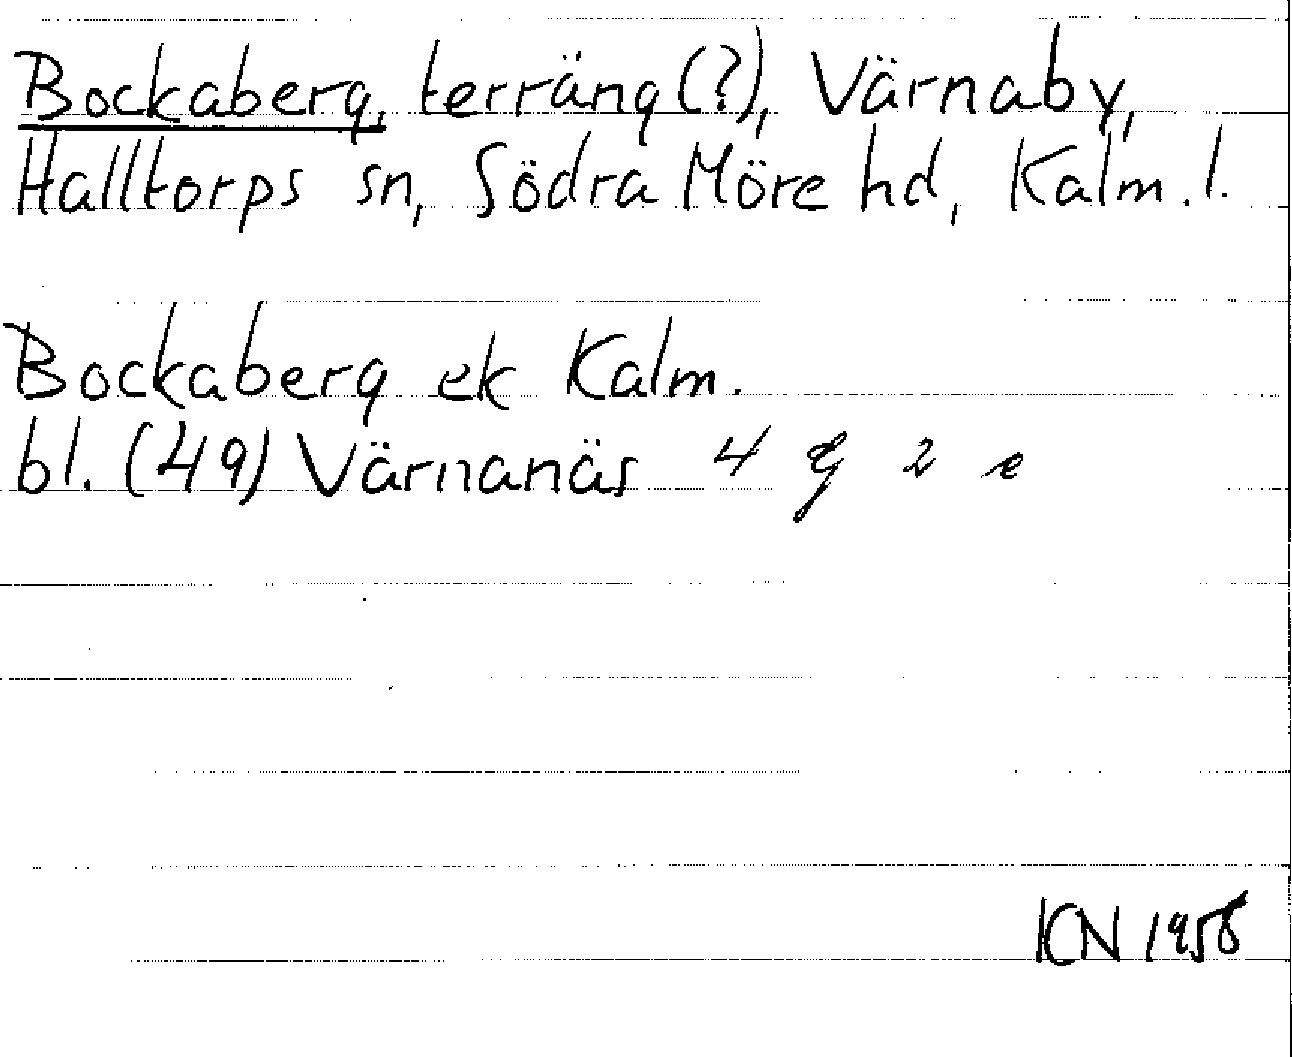 Bockaberg, terräng (?), Värnaby,
Halltorps sn, Södra Möre hd, Kalm. l.
Bockaberg ek Kalm.
bl. (49) Värnanäs 4 g 2 e
KN 1958